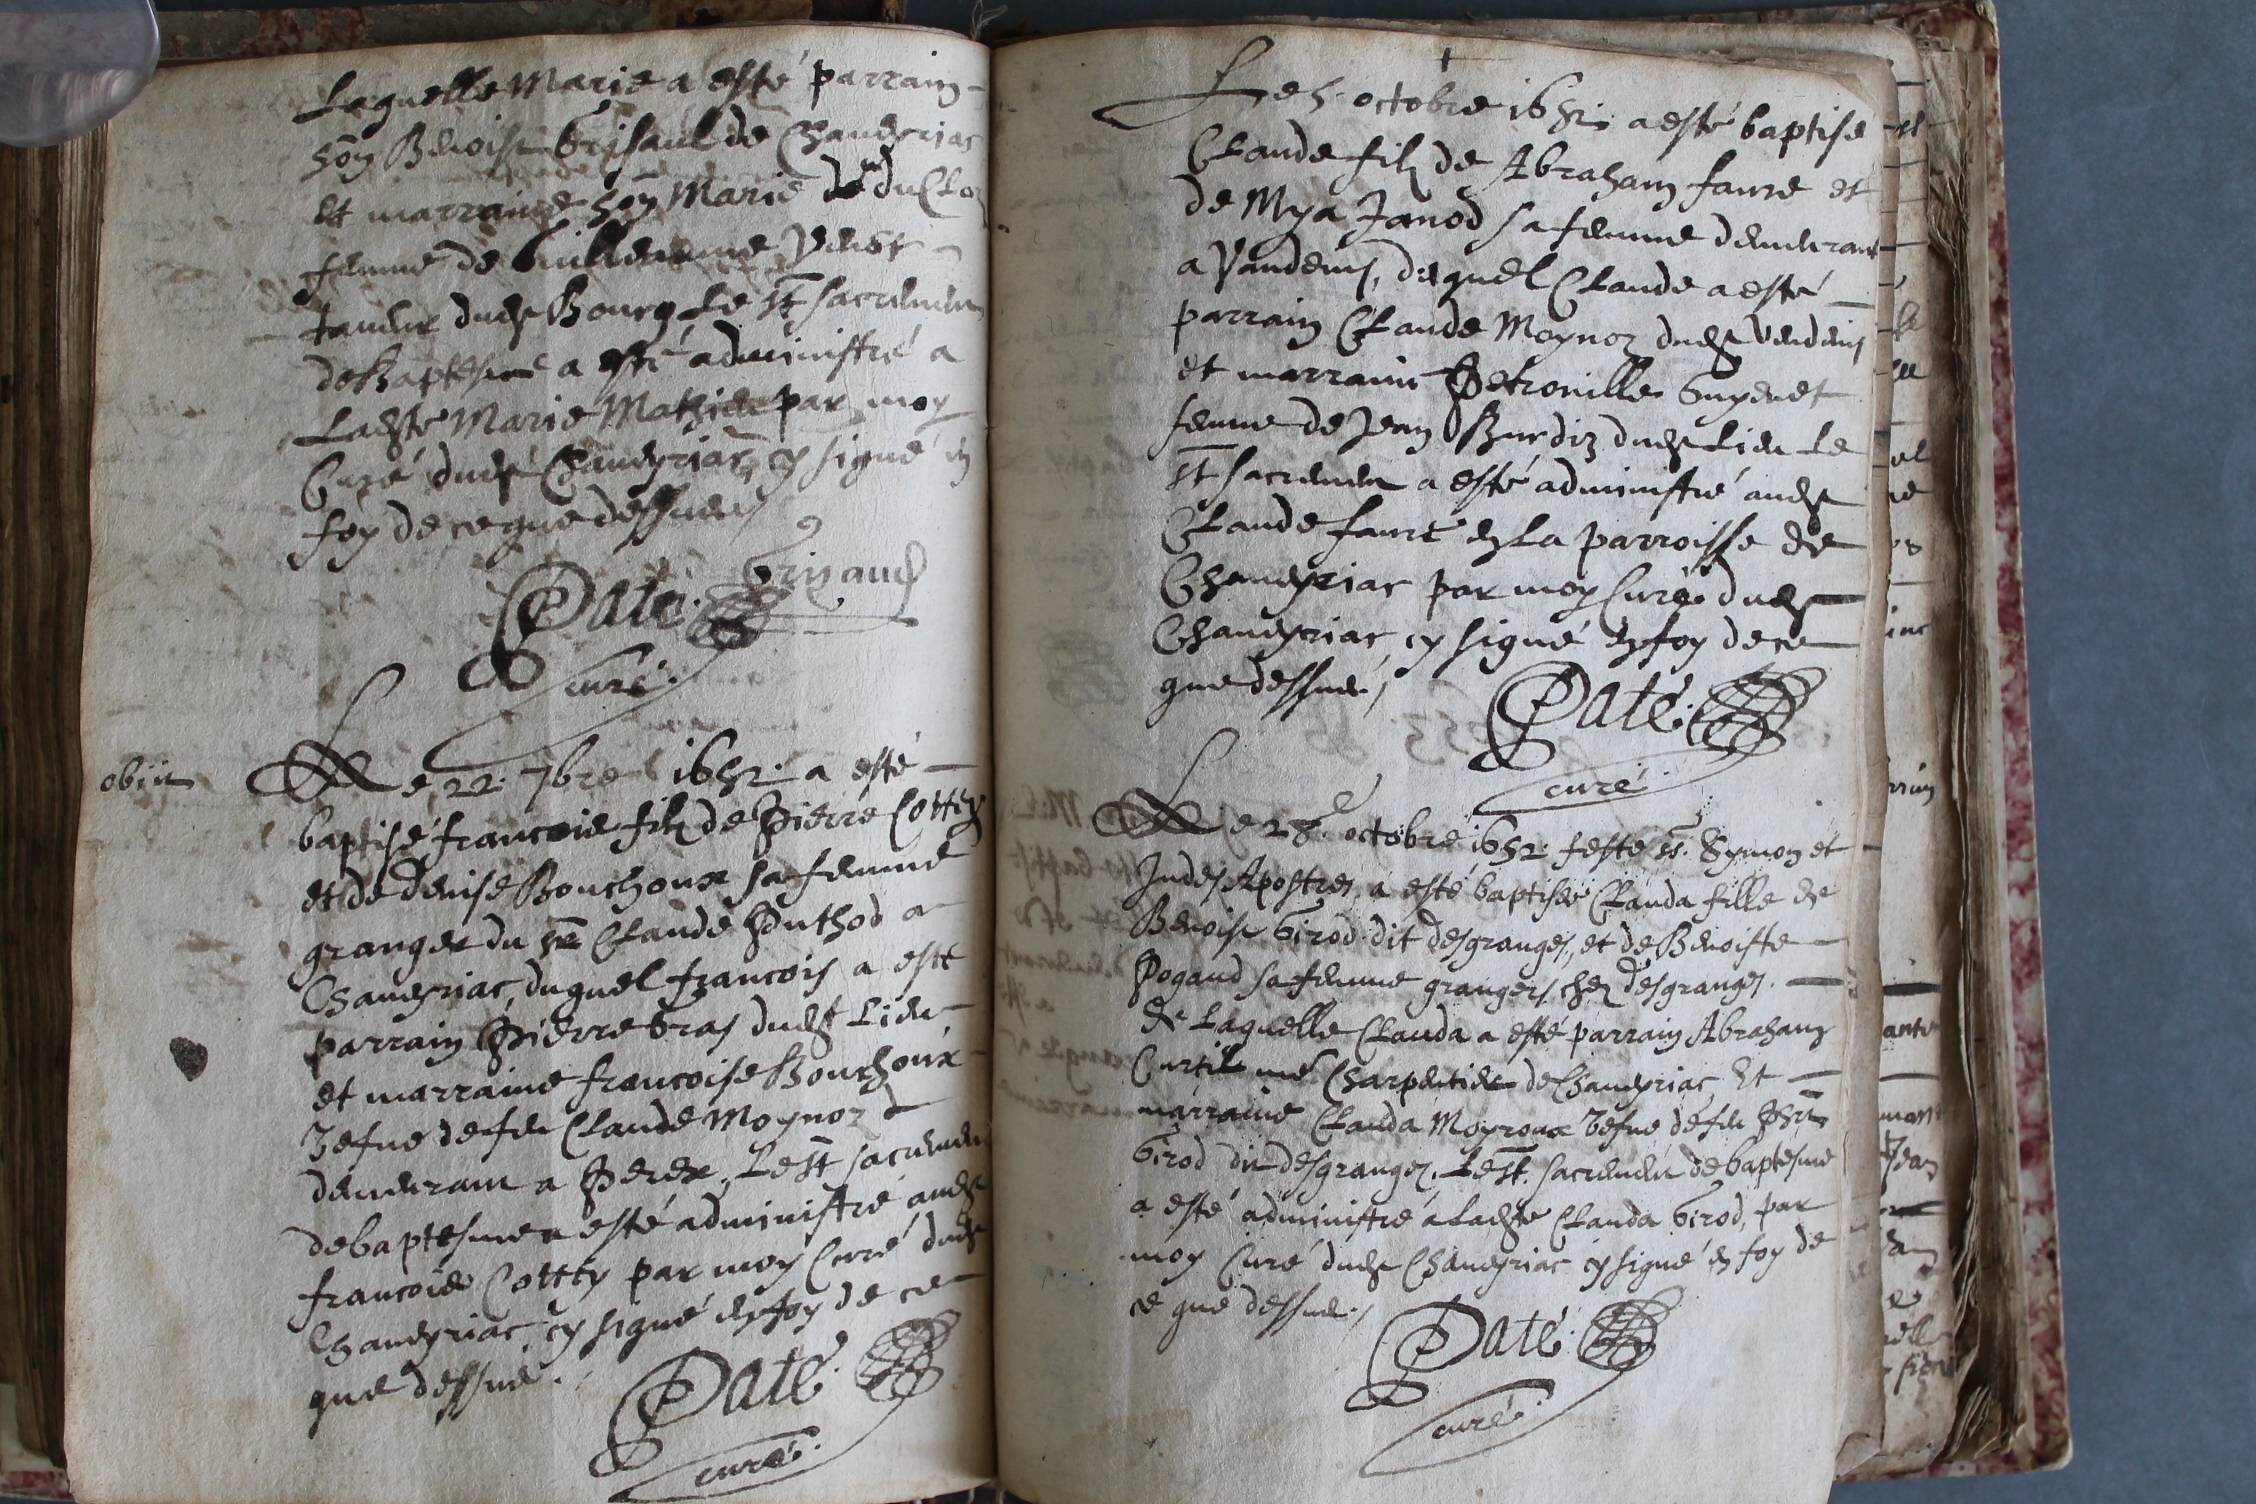 Laquelle Marie a esté parrain
hon Benoist Grisaud de Chaveyriac
et marraine hon Marie du Clo
femme de Guillermme
duct Bourg Le st sacrement
de Baptesme a esté administré a
Ladste Marie Mathieu par moy
Curé duct Chaveyriac, cy signé en
foy de ce que dessus
Grisaud
Paté.
curé.
obiit
Le 22. 7bre 1652. a esté
baptisé francois filz de Pierre Cottey
et de Denise Bouchoux sa femme
granger du sr Claude Puthod a
Chaveyriac, duquel francois a esté
parrain Pierre Gras duct Lieu
et marraine francoise Bouchoux
vefve de feu Claude Moynoz
demeurant a Perex, Le st sacrement
de baptesme a esté administré audt
francois Cottey par moy Curé dudt
Chaveyriac, cy signé en foy de ce
que dessus.
Paté.
curé.
Le 5. octobre 1652. a esté baptisé
Claude filz de Abraham faure et
de Mya Janod sa femme demeurant
a Vandeins, duquel Claude a esté
parrain Claude Moynoz dudt Vendeins
et marraine Petronille Guyenet
femme de Jean Burdiz dudt Lieu Le
st sacrement a esté administré audt
Claude faure en La parroisse de
Chaveyriac par moy Curé dudt
Chaveyriac, cy signé en foy de ce
que dessus,
Paté.
curé.
Le 28. octobre 1652. feste ss. Symon et
Judes Apostres, a esté baptisée Clauda fille de
Benoist Girod dit desgranges, et de Benoiste
Pogand sa femme grangers chez desgranges.
de Laquelle Clauda a esté parrain Abraham
Curtil me Charpentier de Chaveyriac, Et
marraine Clauda Moyroux vefve de feu
Girod dit desgranges. Le st. sacrement de baptesme
a esté administré a Ladte Clauda Girod, par
moy Curé dudt Chaveyriac cy signé en foy de
ce que dessus,
Paté.
curé.